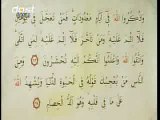 dost
وَاذْكُرُوا اللَّهَ فِي أَيَّامٍ مَعْدُودَاتٍ فَمَنْ تَعَجَّلَ فِي
يَوْمَيْنِ فَلَا إِثْمَ عَلَيْهِ وَمَنْ تَأَخَّرَ فَلَا إِثْمَ عَلَيْهِ لِمَنِ
اتَّقَى وَاتَّقُوا اللَّهَ وَاعْلَمُوا أَنَّكُمْ إِلَيْهِ تُحْشَرُونَ وَمِنَ
النَّاسِ مَنْ يُعْجِبُكَ قَوْلُهُ فِي الْحَيَوةِ الدُّنْيَا وَيُشْهِدُ اللَّهَ
عَلَى مَا فِي قَلْبِهِ وَهُوَ أَلَدُّ الْخِصَامِ